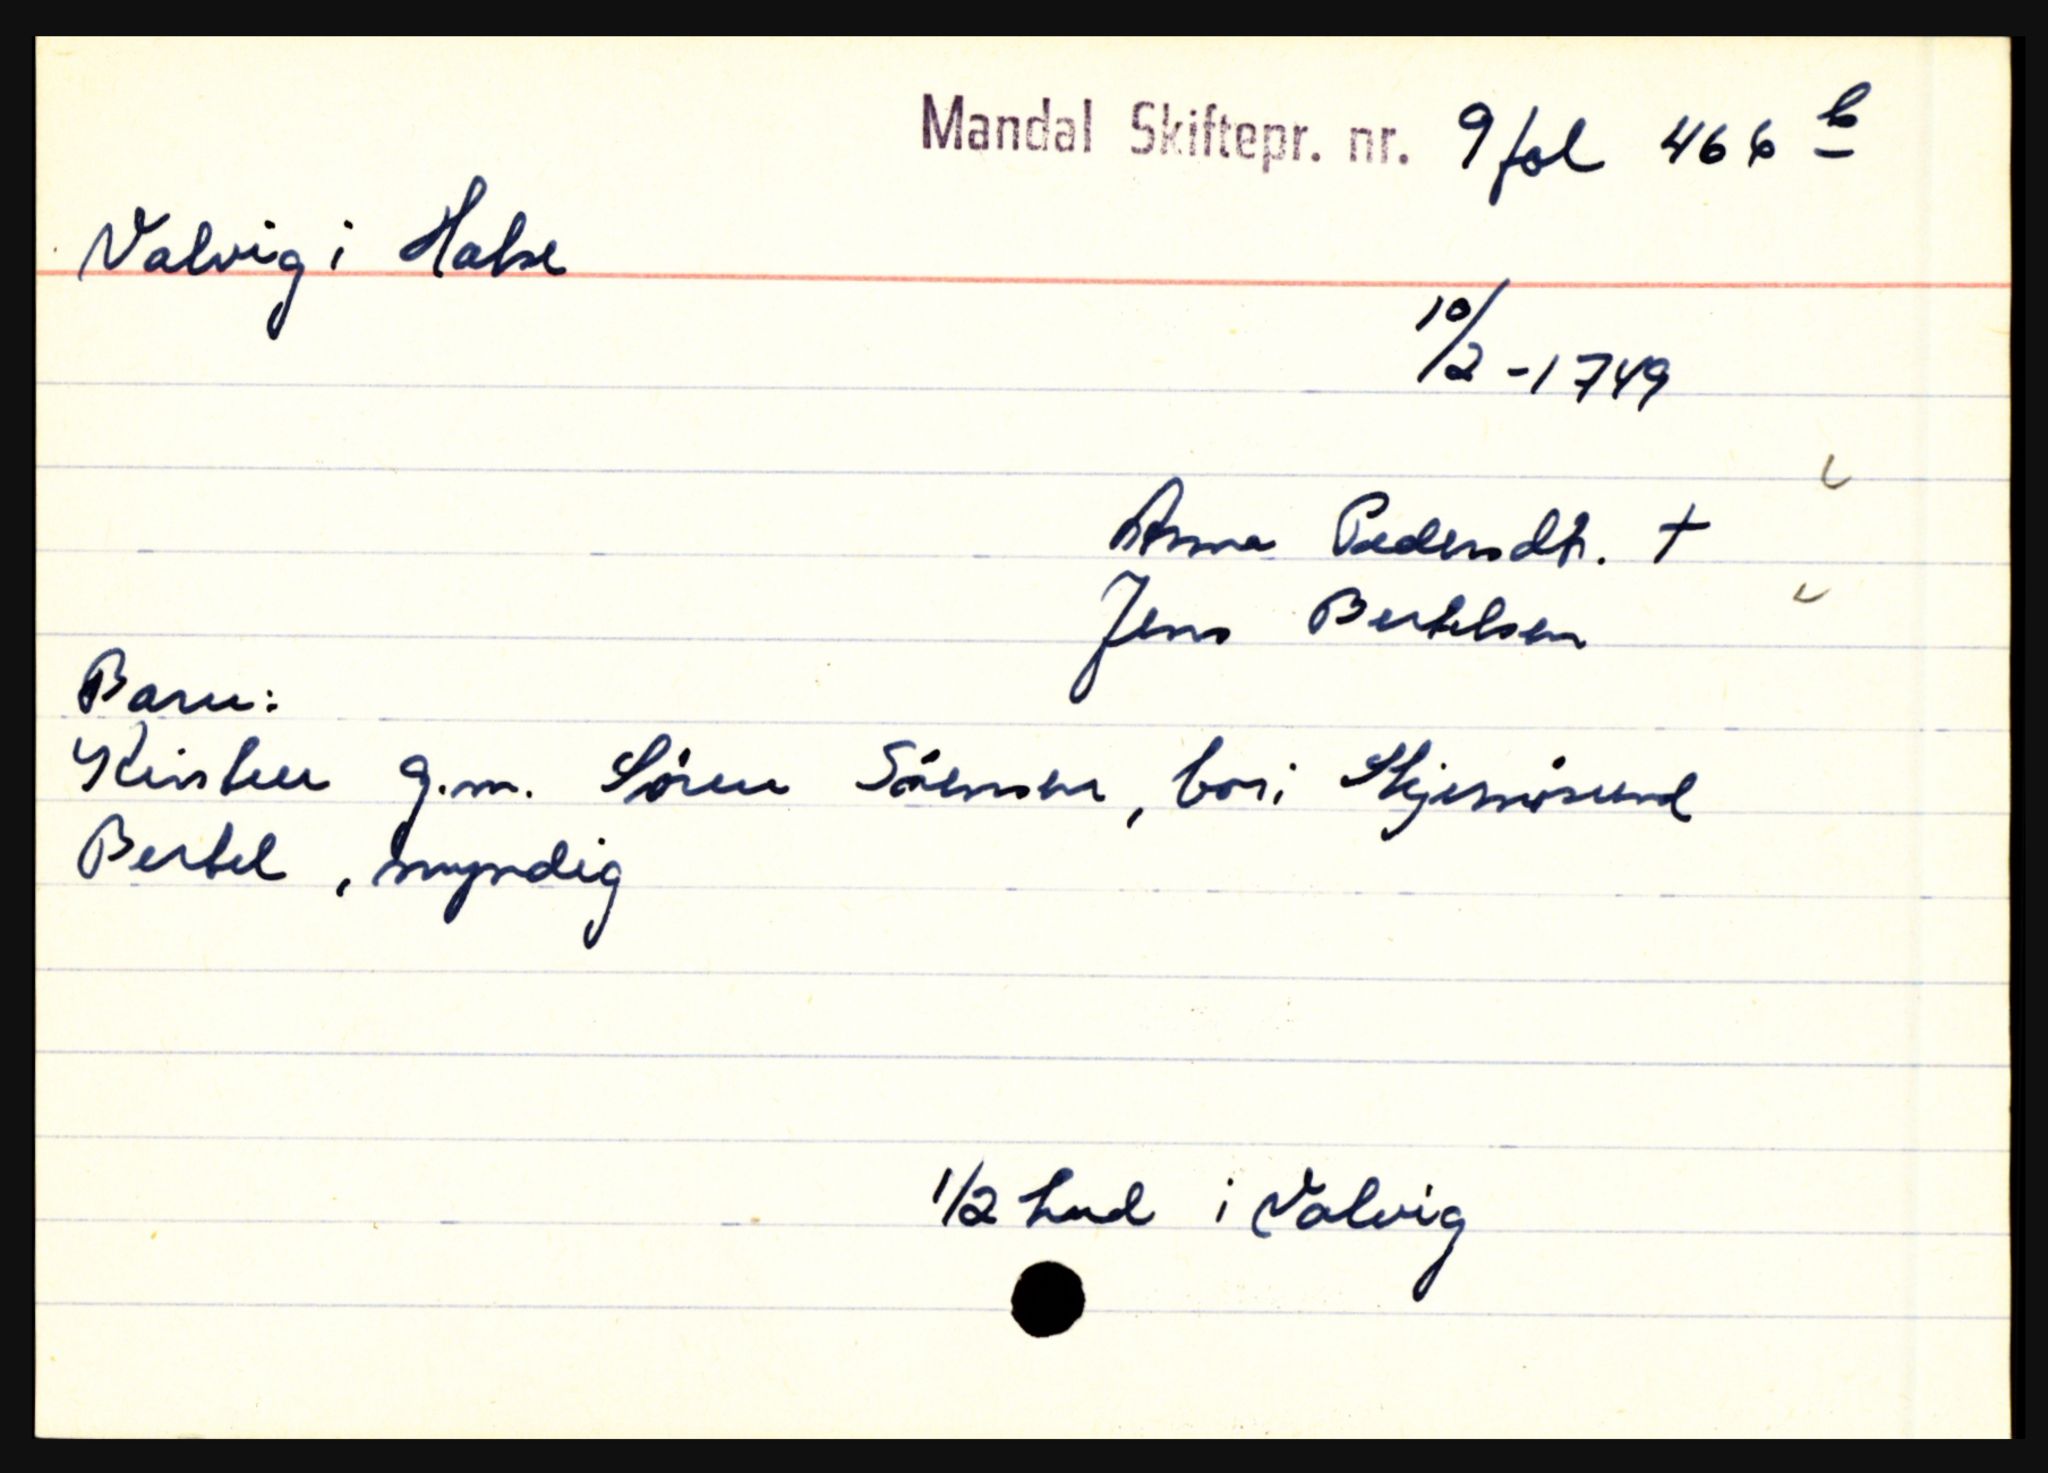 Mandal Skiftepr. nr. 9 fol 466 b
Valvig i Halse
10/2 - 1749
Anna Pedersdtr. +
Jens Bertelsen
Barn:
Kirsten g.m. Sören Sörensen, bor i Skjernösund
Bertel, myndig
1/2 hud i Valvig